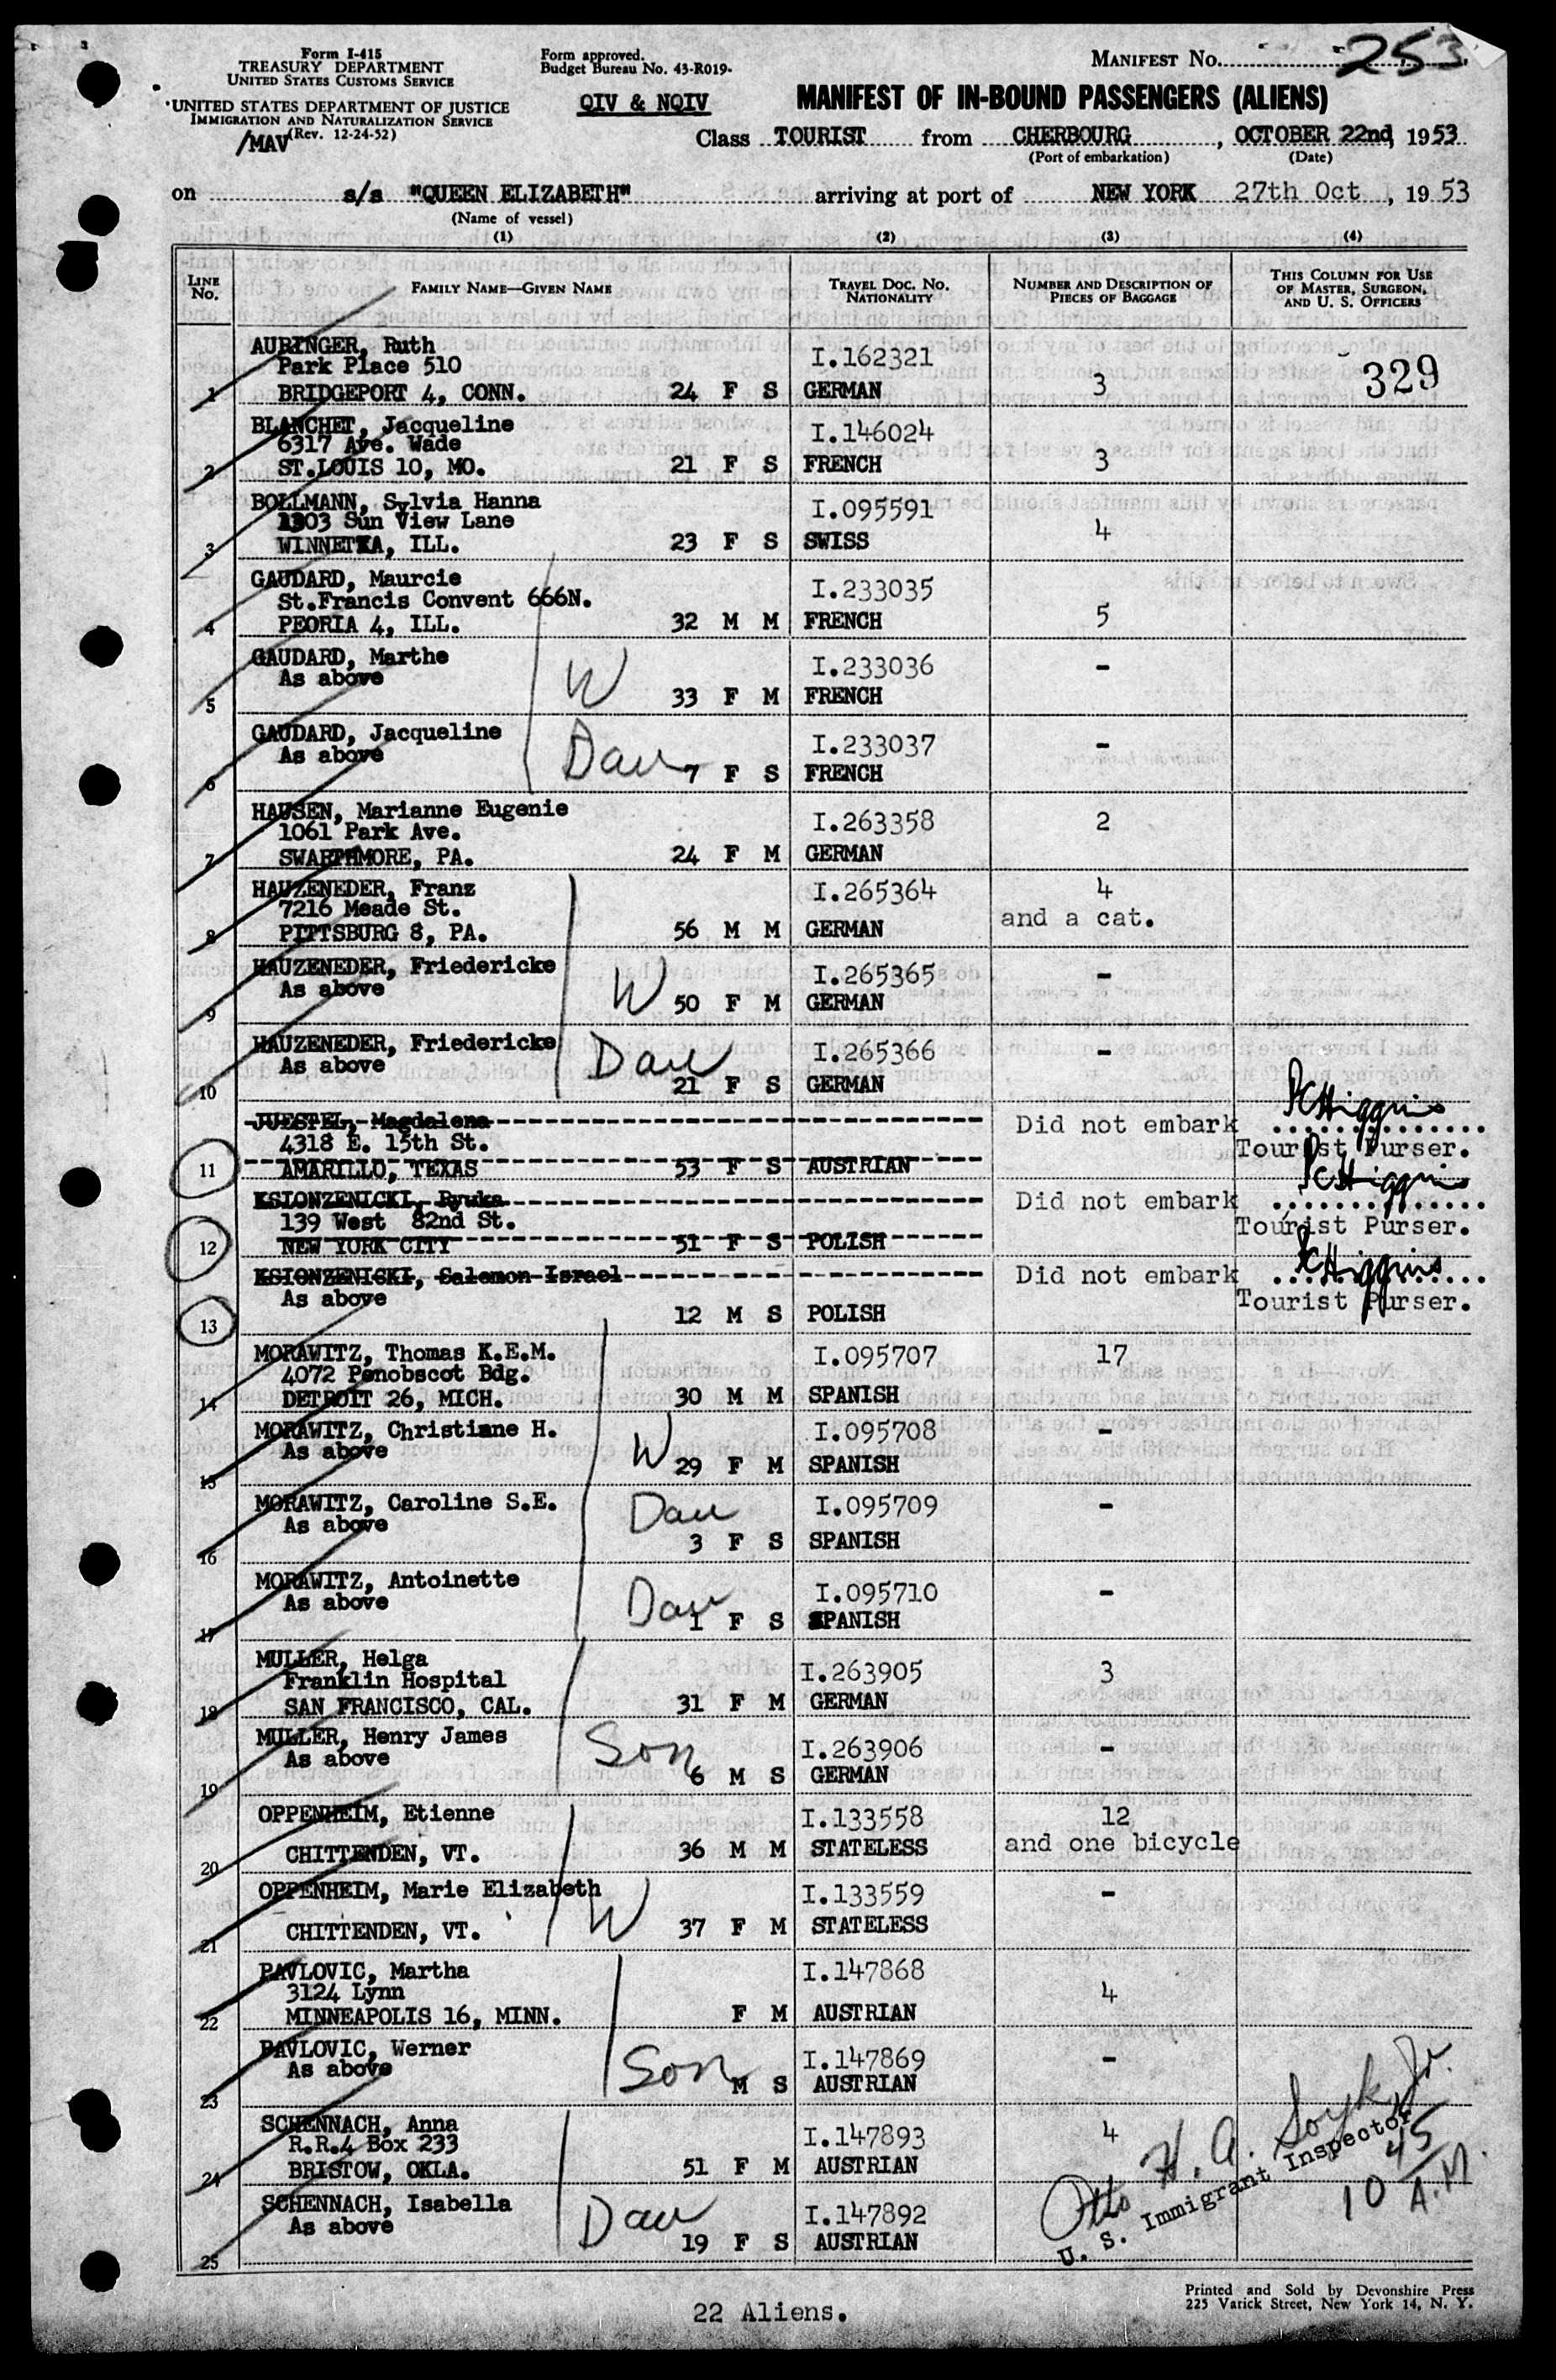 Form I-415
TREASURY DEPARTMENT
UNITED STATES CUSTOMS SERVICE
UNITED STATES DEPARTMENT OF JUSTICE
IMMIGRATION AND NATURALIZATION SERVICE
(Rev. 12-24-52)
/MAV
Form approved.
Budget Bureau No. 43-R019-
QIV & NQIV
MANIFEST No. 253
MANIFEST OF IN-BOUND PASSENGERS (ALIENS)
Class TOURIST from CHERBOURG, OCTOBER 22nd, 1953
(Port of embarkation) (Date)
on s/s "QUEEN ELIZABETH" arriving at port of NEW YORK 27th Oct, 1953
(Name of vessel)
(1) (2) (3) (4)
LINE No. FAMILY NAME—GIVEN NAME TRAVEL DOC. No. NATIONALITY NUMBER AND DESCRIPTION OF PIECES OF BAGGAGE THIS COLUMN FOR USE OF MASTER, SURGEON, AND U. S. OFFICERS
AURINGER, Ruth I.162321
Park Place 510 329
1 BRIDGEPORT 4, CONN. 24 F S GERMAN 3
BLANCHET, Jacqueline I.146024
6317 Ave. Wade
2 ST.LOUIS 10, MO. 21 F S FRENCH 3
BOLLMANN, Sylvia Hanna I.095591
1303 Sun View Lane
3 WINNETKA, ILL. 23 F S SWISS 4
GAUDARD, Maurcie I.233035
St.Francis Convent 666N.
4 PEORIA 4, ILL. 32 M M FRENCH 5
GAUDARD, Marthe I.233036 -
As above W
5 33 F M FRENCH
GAUDARD, Jacqueline I.233037 -
As above Dau
6 7 F S FRENCH
HAUSEN, Marianne Eugenie I.263358 2
1061 Park Ave.
7 SWARTHMORE, PA. 24 F M GERMAN
HAUZENEDER, Franz I.265364 4
7216 Meade St. and a cat.
8 PITTSBURG 8, PA. 56 M M GERMAN
HAUZENEDER, Friedericke I.265365 -
As above W
9 50 F M GERMAN
HAUZENEDER, Friedericke I.265366 -
As above Dau
10 21 F S GERMAN
JUESTEL, Magdalena Did not embark PCHiggins
4318 E. 15th St. Tourist Purser.
11 AMARILLO, TEXAS 53 F S AUSTRIAN
KSIONZENICKI, Ryuka Did not embark PCHiggins
139 West 82nd St. Tourist Purser.
12 NEW YORK CITY 51 F S POLISH
KSIONZENICKI, Salemon Israel Did not embark PCHiggins
As above Tourist Purser.
13 12 M S POLISH
MORAWITZ, Thomas K.E.M. I.095707 17
4072 Penobscot Bdg.
14 DETROIT 26, MICH. 30 M M SPANISH
MORAWITZ, Christiane H. I.095708 -
As above W
15 29 F M SPANISH
MORAWITZ, Caroline S.E. I.095709 -
As above Dau
16 3 F S SPANISH
MORAWITZ, Antoinette I.095710 -
As above Dau
17 1 F S SPANISH
MULLER, Helga I.263905 3
Franklin Hospital
18 SAN FRANCISCO, CAL. 31 F M GERMAN
MULLER, Henry James I.263906 -
As above Son
19 6 M S GERMAN
OPPENHEIM, Etienne I.133558 12
and one bicycle
20 CHITTENDEN, VT. 36 M M STATELESS
OPPENHEIM, Marie Elizabeth I.133559 -
W
21 CHITTENDEN, VT. 37 F M STATELESS
PAVLOVIC, Martha I.147868
3124 Lynn 4
22 MINNEAPOLIS 16, MINN. F M AUSTRIAN
PAVLOVIC, Werner I.147869 -
As above Son
23 M S AUSTRIAN
SCHENNACH, Anna I.147893 4
R.R.4 Box 233
24 BRISTOW, OKLA. 51 F M AUSTRIAN
SCHENNACH, Isabella I.147892
As above Dau
25 19 F S AUSTRIAN
Otto H. A. Soyk, Jr.
U. S. Immigrant Inspector
10 45 A.M.
22 Aliens.
Printed and Sold by Devonshire Press
225 Varick Street, New York 14, N. Y.